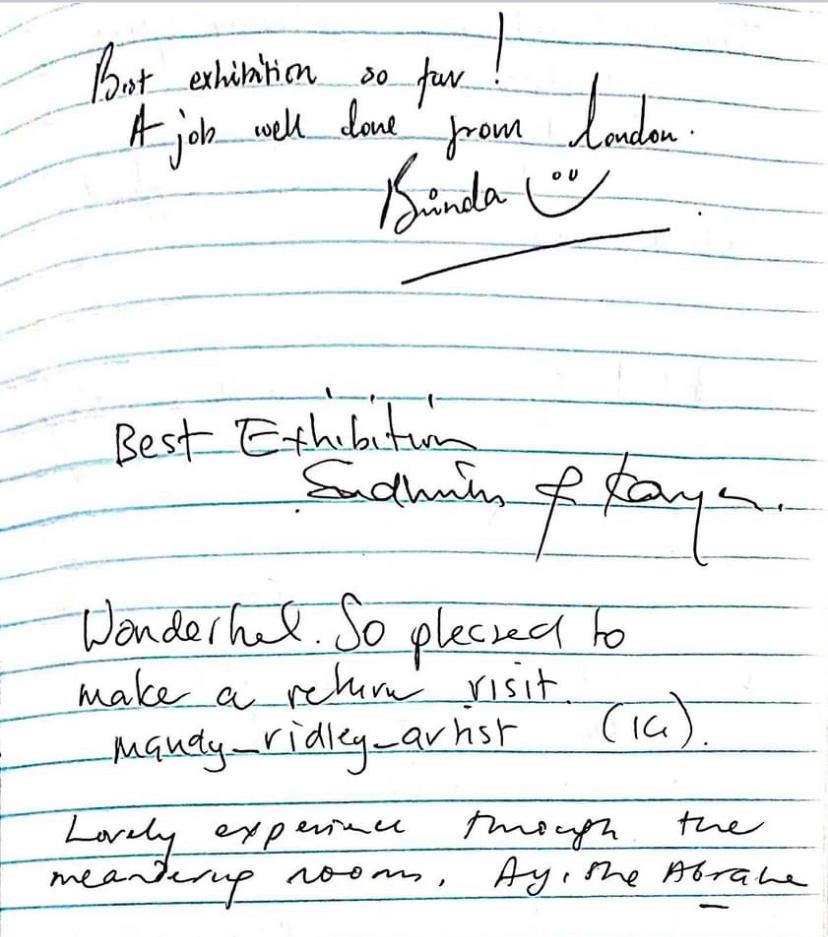 Best exhibition so far!
A job well done from London.
Best Exhibition
Wonderful. So pleased to
make a return visit.
mandy_ridley_artist (IG).
Lovely experience through the
meandering rooms.